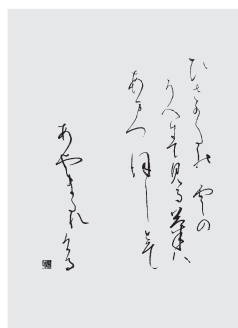 ひさかたの 雲の
うへにて見る菊は
あまつ保しとぞ
あやまたれける